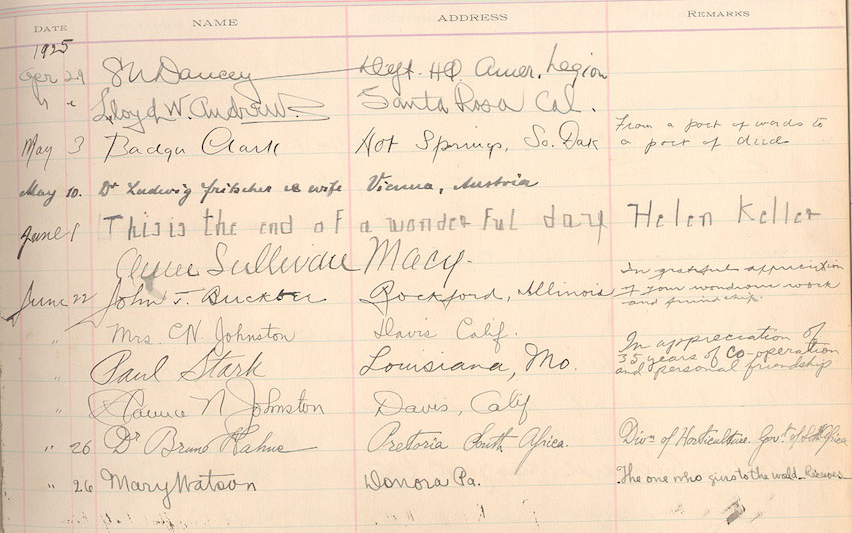 DATE NAME ADDRESS REMARKS
1925
Apr 29 S U Dancey Dept. HQ. Amer. Legion
" " Lloyd W. Andrews Santa Rosa Cal.
May 3 Badger Clark Hot Springs, So. Dak From a poet of words to
a poet of deeds
May 10. Dr Ludwig Fritscher & wife Vienna, Austria
June 1 This is the end of a wonderful day Helen Keller
Anne Sullivan Macy.
June 22 John T. Buckbee Rockford, Illinois In grateful appreciation
of your wondrous work
and friendship.
" Mrs. C N. Johnston Davis Calif.
" Paul Stark Louisiana, Mo. In appreciation of
35 years of co-operation
and personal friendship
" Clarence N Johnston Davis, Calif
" 26 Dr Bruno Pretoria South Africa. Divn of Horticulture. Govt of S Africa
" 26 Mary Watson Donora Pa. The one who gives to the world. Receives